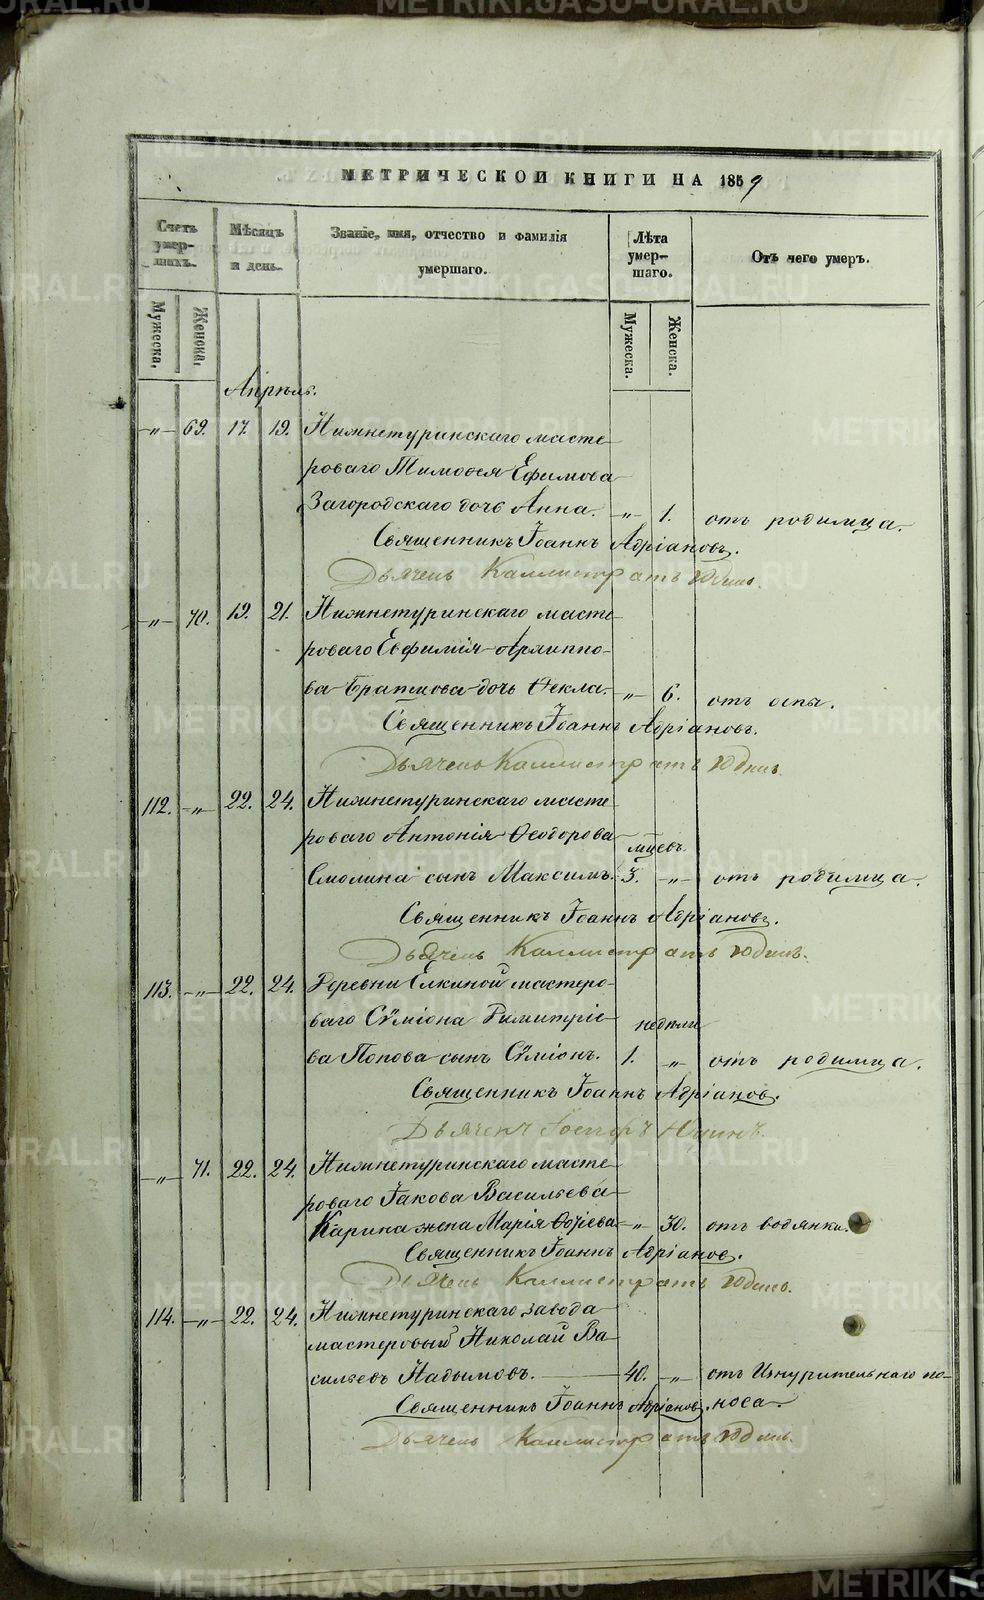 МЕТРИЧЕСКОЙ КНИГИ НА 1859
Счетъ умер-шихъ. Мѣсяцъ и день. Званіе, имя, отчество и фамилія умершаго. Лѣта умер-шаго. Отъ чего умеръ.
Мужеска. Женска. Мужеска. Женска.
Апрѣль.
„ 69. 17. 19. Нижнетуринскаго масте-
роваго Тимоѳея Ефимова
Загородскаго дочь Анна. „ 1. отъ родимца.
Священникъ Іоаннъ Адріановъ.
Дьячекъ Каллистратъ
„ 70. 19. 21. Нижнетуринскаго масте-
роваго Евфимія Архиппо-
ва Братцова дочь Ѳекла. „ 6. отъ оспы.
Священникъ Іоаннъ Адріановъ.
Дьячекъ Каллистратъ
112. „ 22. 24. Нижнетуринскаго масте-
роваго Антонія Ѳеодорова мцевъ.
Смолина сынъ Максимъ. 3. „ отъ родимца.
Священникъ Іоаннъ Адріановъ.
Дьячекъ Каллистратъ
113. „ 22. 24. Деревни Елкиной мастеро-
ваго Сѵміона Димитріе- недѣли
ва Попова сынъ Сѵміонъ. 1. „ отъ родимца.
Священникъ Іоаннъ Адріановъ.
Дьячекъ
„ 71. 22. 24. Нижнетуринскаго масте-
роваго Іакова Васильева
Карина жена Марія „ 30. отъ водянки.
Священникъ Іоаннъ Адріановъ.
Дьячекъ Каллистратъ
114. „ 22. 24. Нижнетуринскаго завода
мастеровый Николай Ва-
сильевъ Надымовъ. 40. „ отъ Изнурительнаго по-
Священникъ Іоаннъ Адріановъ. носа.
Дьячекъ Каллистратъ
METRIKI.GASO-URAL.RU